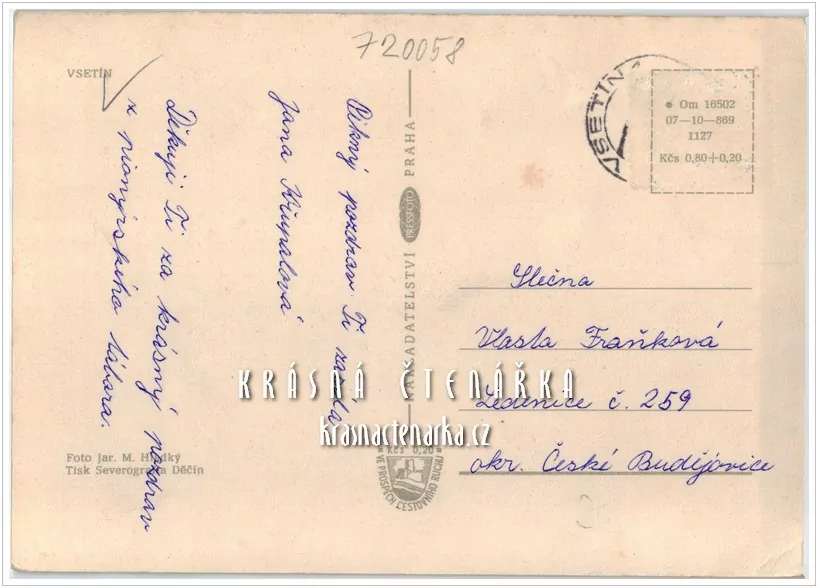 720058
VSETÍN
VSETÍN 1
Om 16502
07—10—869
1127
Kčs 0,80+0,20
Pěkný pozdrav Ti zasílá
Jana Křupalová
Děkuji Ti za krásný pozdrav
z pionýrského tábora.
NAKLADATELSTVÍ PRESSFOTO PRAHA
Slečna
Vlasta Fraňková
Ledenice č. 259
okr. České Budějovice
KRÁSNÁ ČTENÁŘKA
krasnactenarka.cz
Foto Jar. M. Hladký
Tisk Severografia Děčín
Kčs 0,20
VE PROSPĚCH CESTOVNÍHO RUCHU